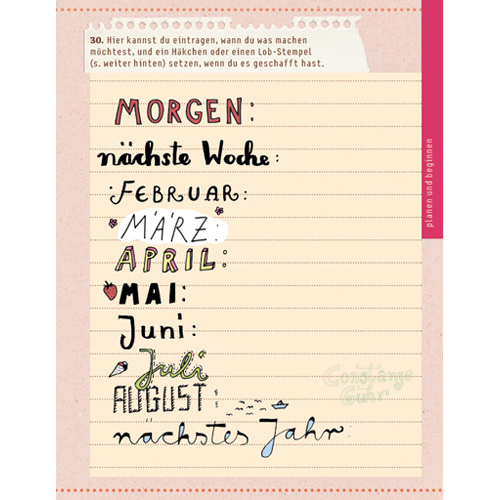 30. Hier kannst du eintragen, wann du was machen
möchtest, und ein Häkchen oder einen Lob-Stempel
(s. weiter hinten) setzen, wenn du es geschafft hast.
planen und beginnen
MORGEN:
nächste Woche:
FEBRUAR:
MÄRZ:
APRIL:
MAI:
Juni:
Juli
AUGUST:
nächstes Jahr:
Constanze
Guhr